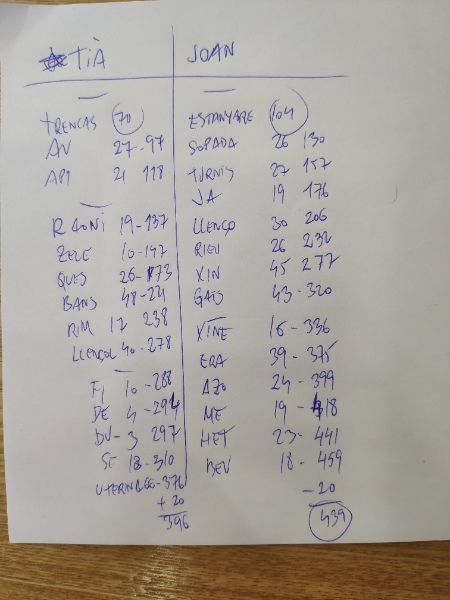 TIÀ
—
TRENCAS 70
AV 27-97
API 21 118
—
RAONI 19-137
ZELE 10-147
QUES 26-173
BANS 48-221
RIM 17 238
LLENÇOL 40-278
—
FI 10-288
DE 4-294
DU-3 297
SE 13-310
-376
+ 20
396
JOAN
—
ESTANYARE 104
SOPADA 26 130
TURNIS 27 157
JA 19 176
LLENÇO 30 206
RIEU 26 232
XIN 45 277
GATS 43-320
XINE 16-336
ERA 39-375
AZO 24-399
ME 19-418
HET 23-441
DEU 18-459
-20
439